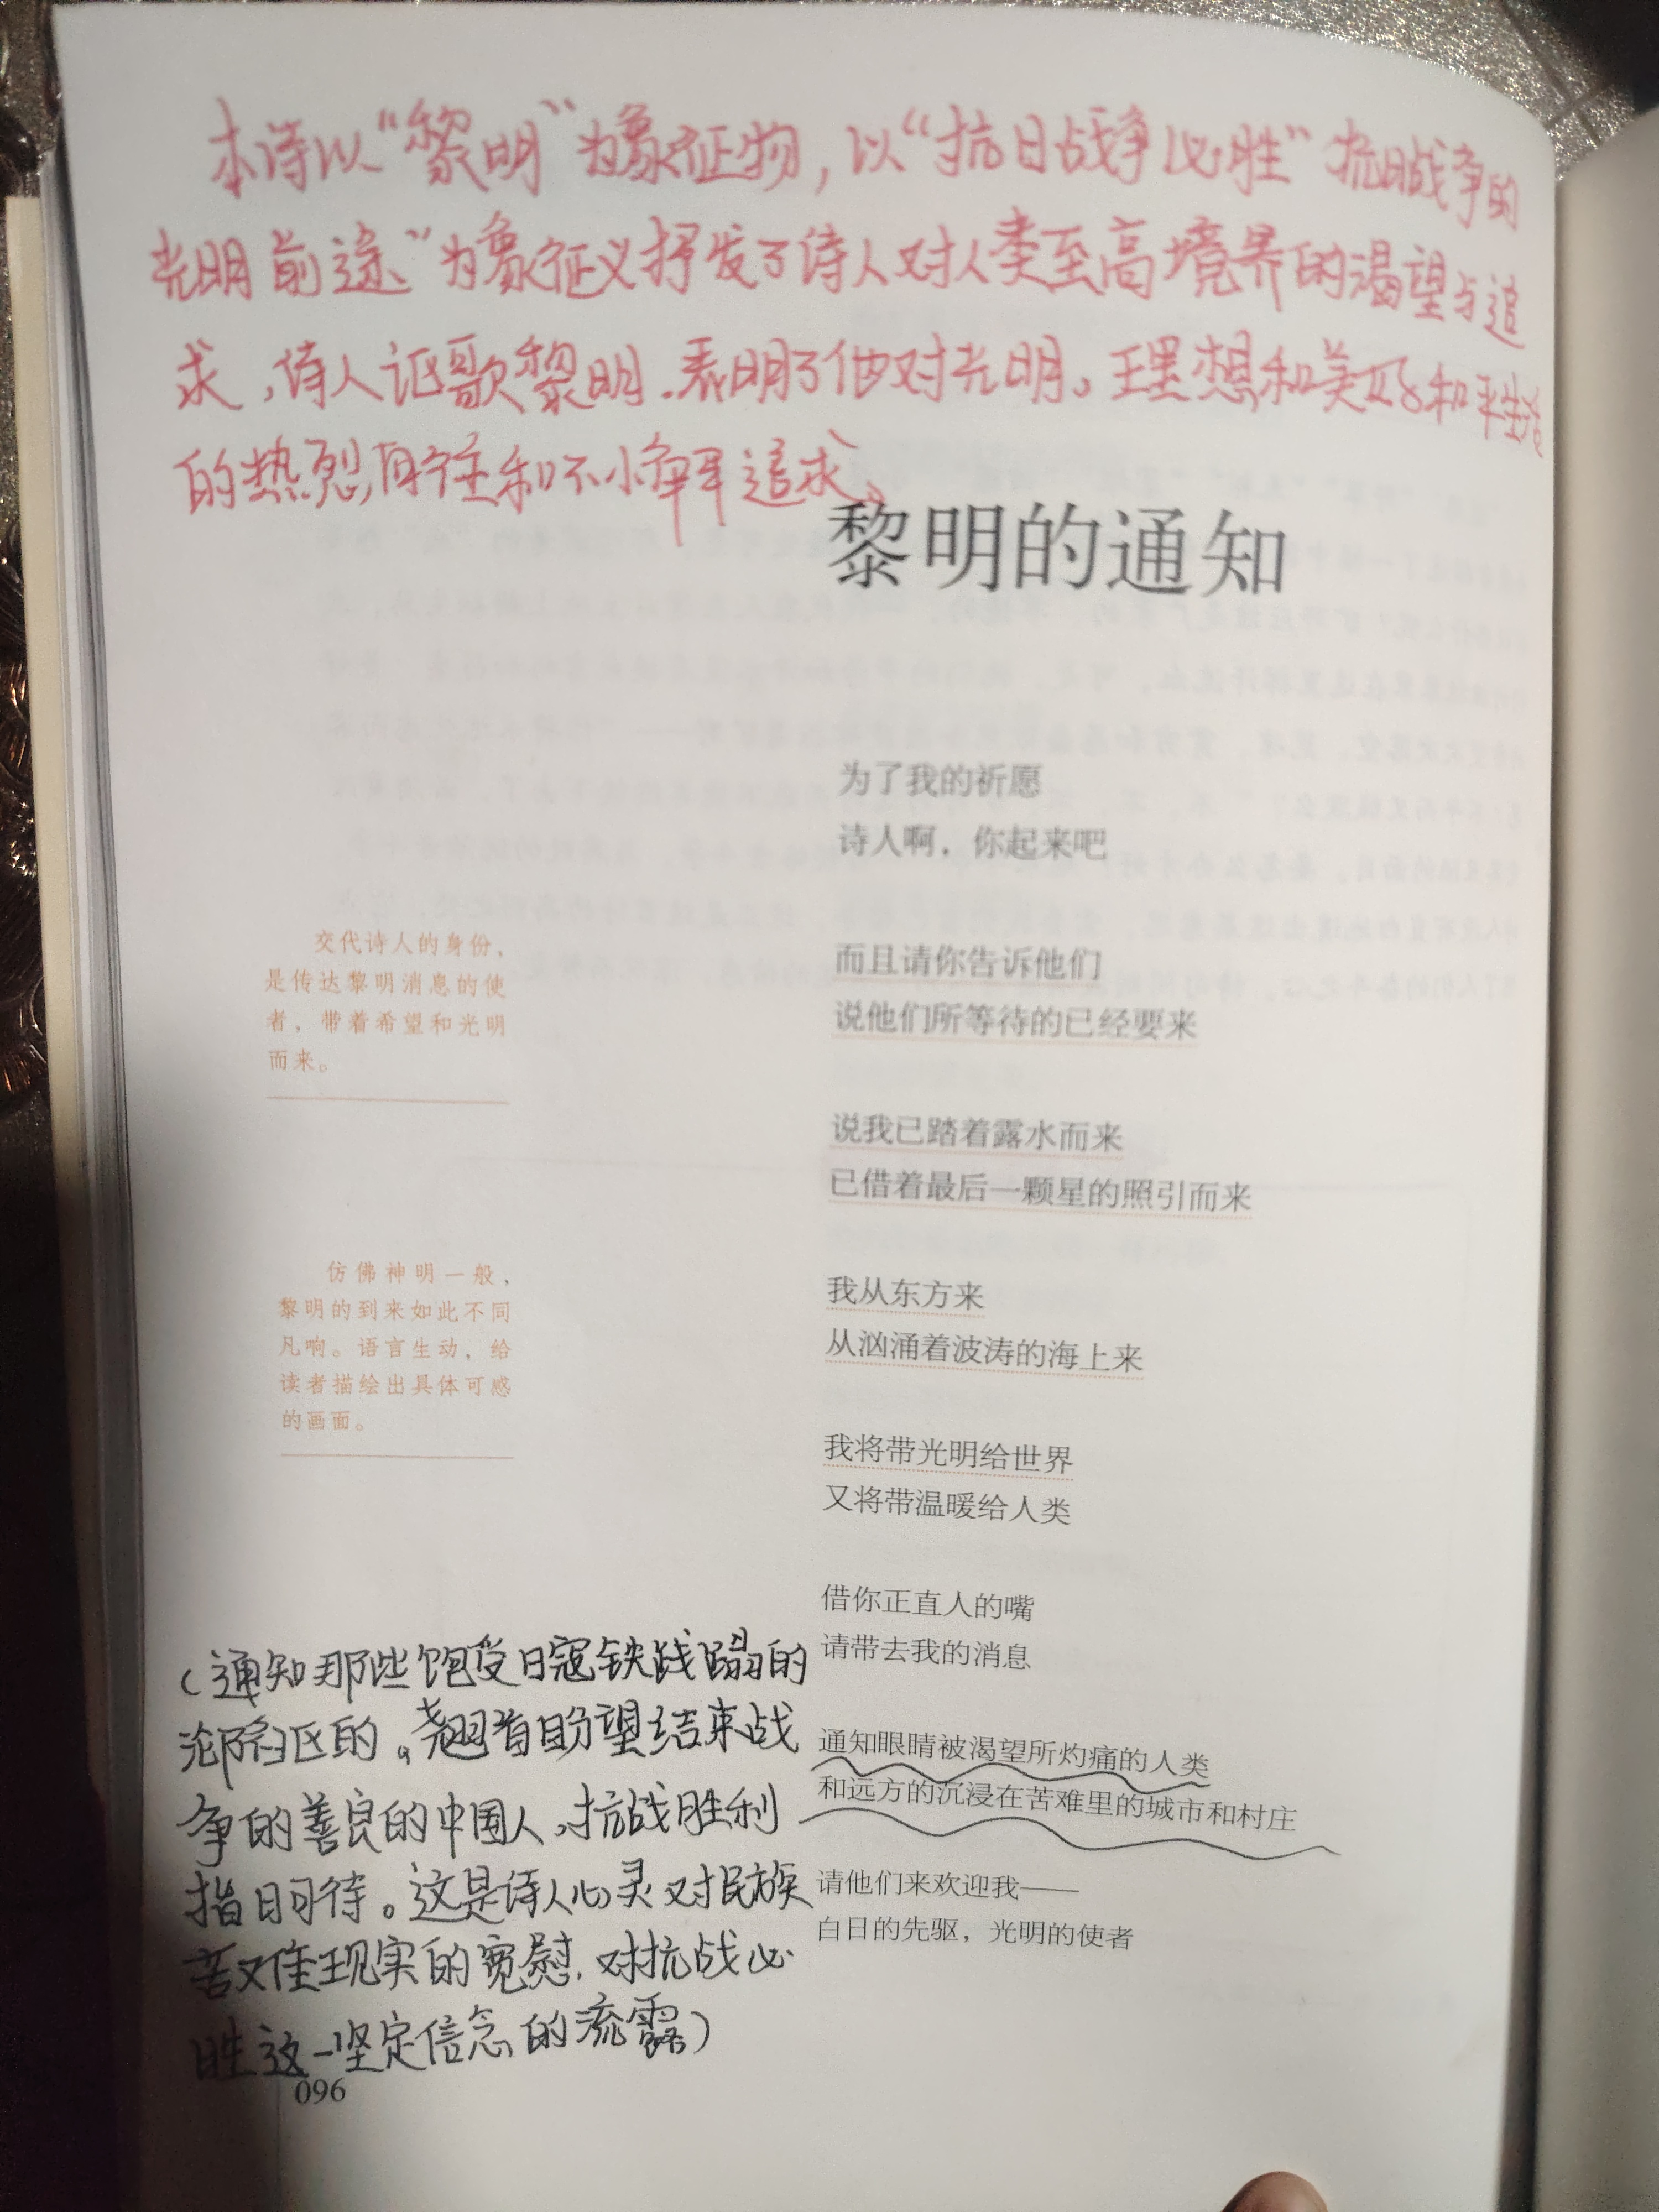 本诗以“黎明”为象征物，以“抗日战争必胜”抗日战争的
光明前途”为象征义抒发了诗人对人类至高境界的渴望与追
求，诗人讴歌黎明.表明了他对光明、理想和美好和平生活
的热烈向往和不懈追求。
黎明的通知
为了我的祈愿
诗人啊，你起来吧
交代诗人的身份，
是传达黎明消息的使
者，带着希望和光明
而来。
而且请你告诉他们
说他们所等待的已经要来
说我已踏着露水而来
已借着最后一颗星的照引而来
仿佛神明一般，
黎明的到来如此不同
凡响。语言生动，给
读者描绘出具体可感
的画面。
我从东方来
从汹涌着波涛的海上来
我将带光明给世界
又将带温暖给人类
借你正直人的嘴
请带去我的消息
（通知那些饱受日寇铁践蹋的
沦陷区的，翘首盼望结束战
争的善良的中国人，抗战胜利
指日可待。这是诗人心灵对民族
苦难现实的宽慰.对抗战必
胜这一坚定信念的流露）
通知眼睛被渴望所灼痛的人类
和远方的沉浸在苦难里的城市和村庄
请他们来欢迎我——
白日的先驱，光明的使者
096